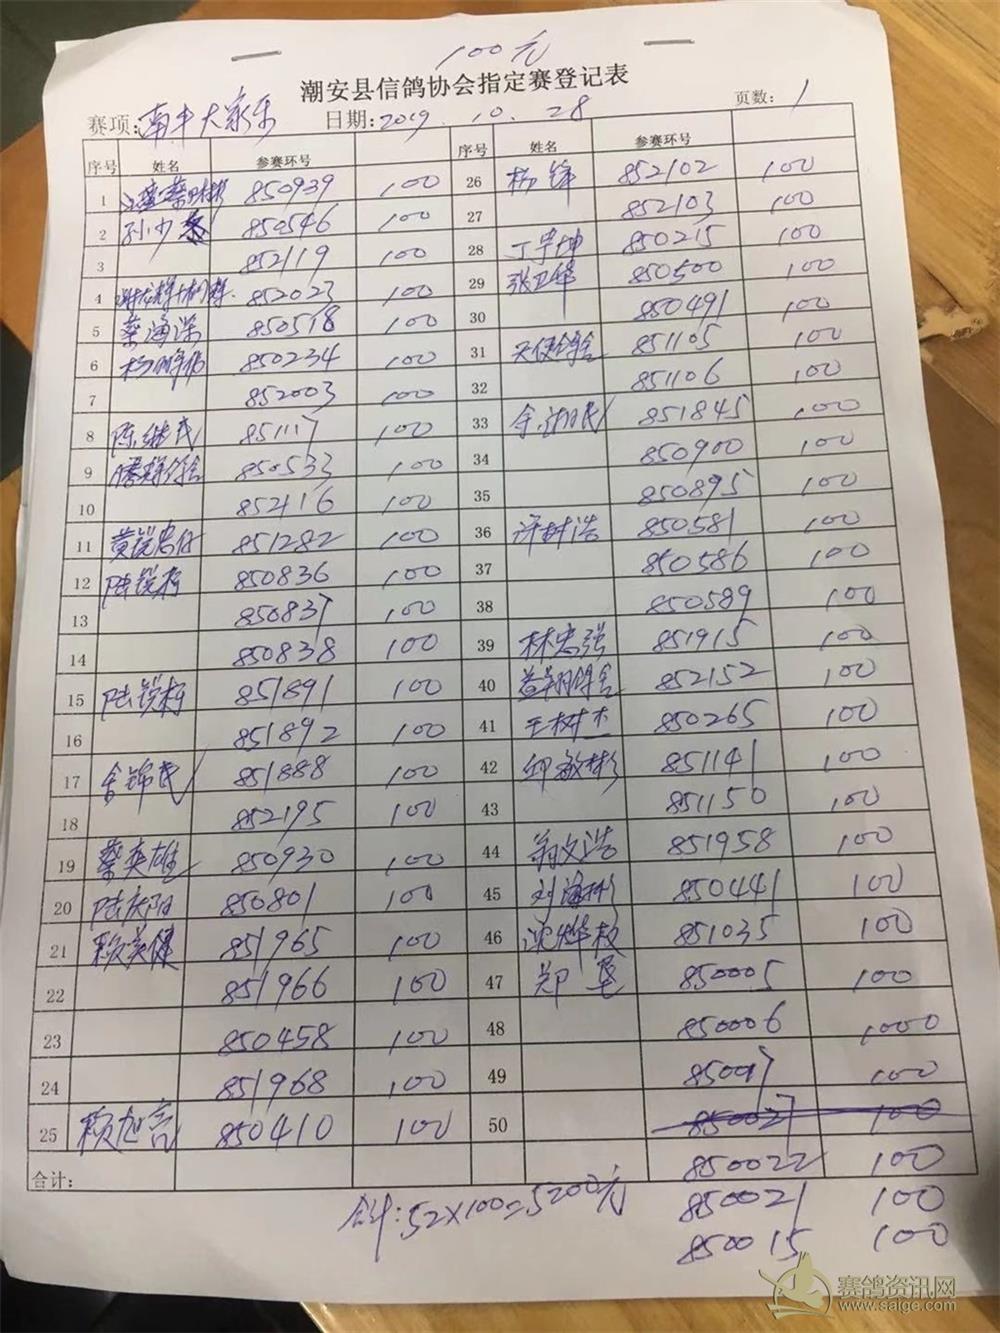 100元
潮安县信鸽协会指定赛登记表
赛项: 南丰大家乐 日期: 2019.10.28 页数: 1
序号 姓名 参赛环号 序号 姓名 参赛环号
1 850939 100 26 杨锋 852102 100
2 孙少 850546 100 27 852103 100
3 852119 100 28 丁早坤 850215 100
4 852023 100 29 张卫华 850500 100
5 蔡海深 850518 100 30 850491 100
6 850234 100 31 天使鸽舍 851105 100
7 852003 100 32 851106 100
8 陈继民 851117 100 33 851845 100
9 腾辉鸽舍 850533 100 34 850900 100
10 852116 100 35 850895 100
11 黄锐忠 851282 100 36 许树浩 850581 100
12 陆锐 850836 100 37 850586 100
13 850837 100 38 850589 100
14 850838 100 39 林忠强 851915 100
15 陆锐 851891 100 40 鸽舍 852152 100
16 851892 100 41 王树 850265 100
17 锦民 851888 100 42 邱敏彬 851141 100
18 852195 100 43 851150 100
19 蔡奕雄 850930 100 44 翁文浩 851958 100
20 陆庆阳 850801 100 45 刘海彬 850441 100
21 赖美健 851965 100 46 沈 851035 100
22 851966 100 47 郑 850005 100
23 850458 100 48 850006 1000
24 851968 100 49 85007 100
25 赖旭亮 850410 100 50 850027 100
合计: 850022 100
合计: 52×100=5200元 850021 100
850015 100
赛鸽资讯网
www.saige.com